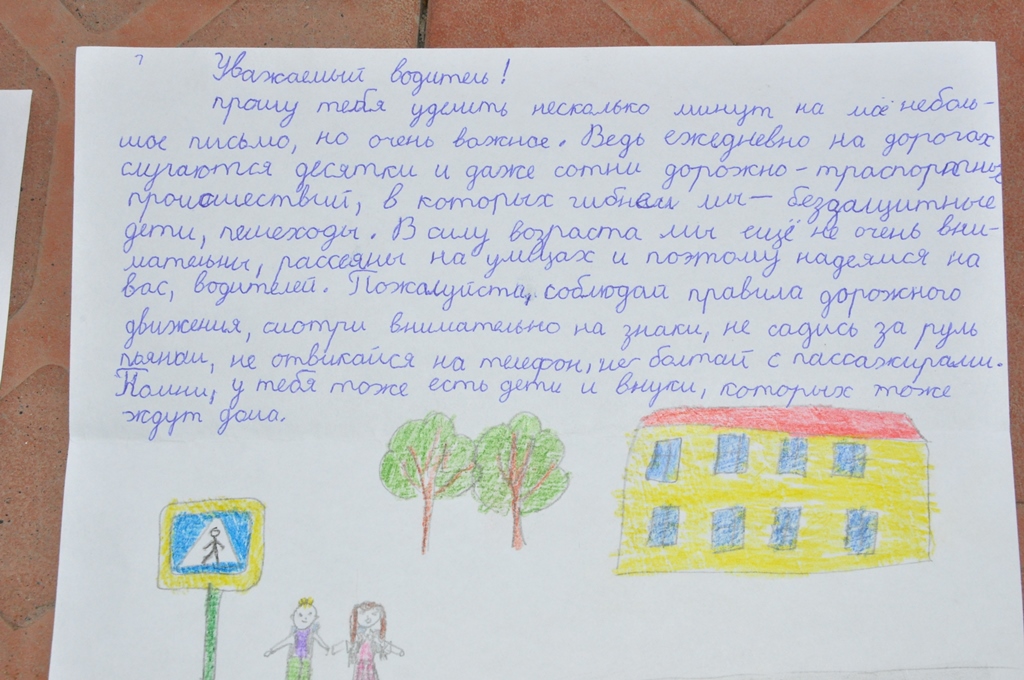 Уважаемый водитель!
прошу тебя уделить несколько минут на моё неболь-
шое письмо, но очень важное. Ведь ежедневно на дорогах
случаются десятки и даже сотни дорожно-траспортных
происшествий, в которых гибнем мы - беззащитные
дети, пешеходы. В силу возраста мы ещё не очень вни-
мательны, рассеяны на улицах и поэтому надеямся на
вас, водителей. Пожалуйста, соблюдай правила дорожного
движения, смотри внимательно на знаки, не садись за руль
пьяным, не отвикайся на телефон, не болтай с пассажирами.
Помни, у тебя тоже есть дети и внуки, которых тоже
ждут дома.